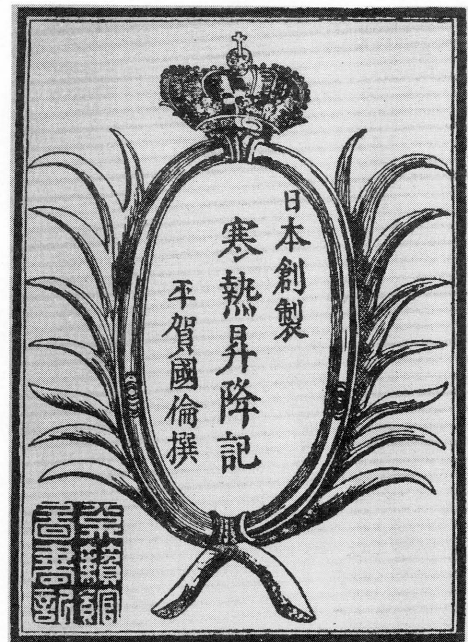 日本創製
寒熱昇降記
平賀國倫撰